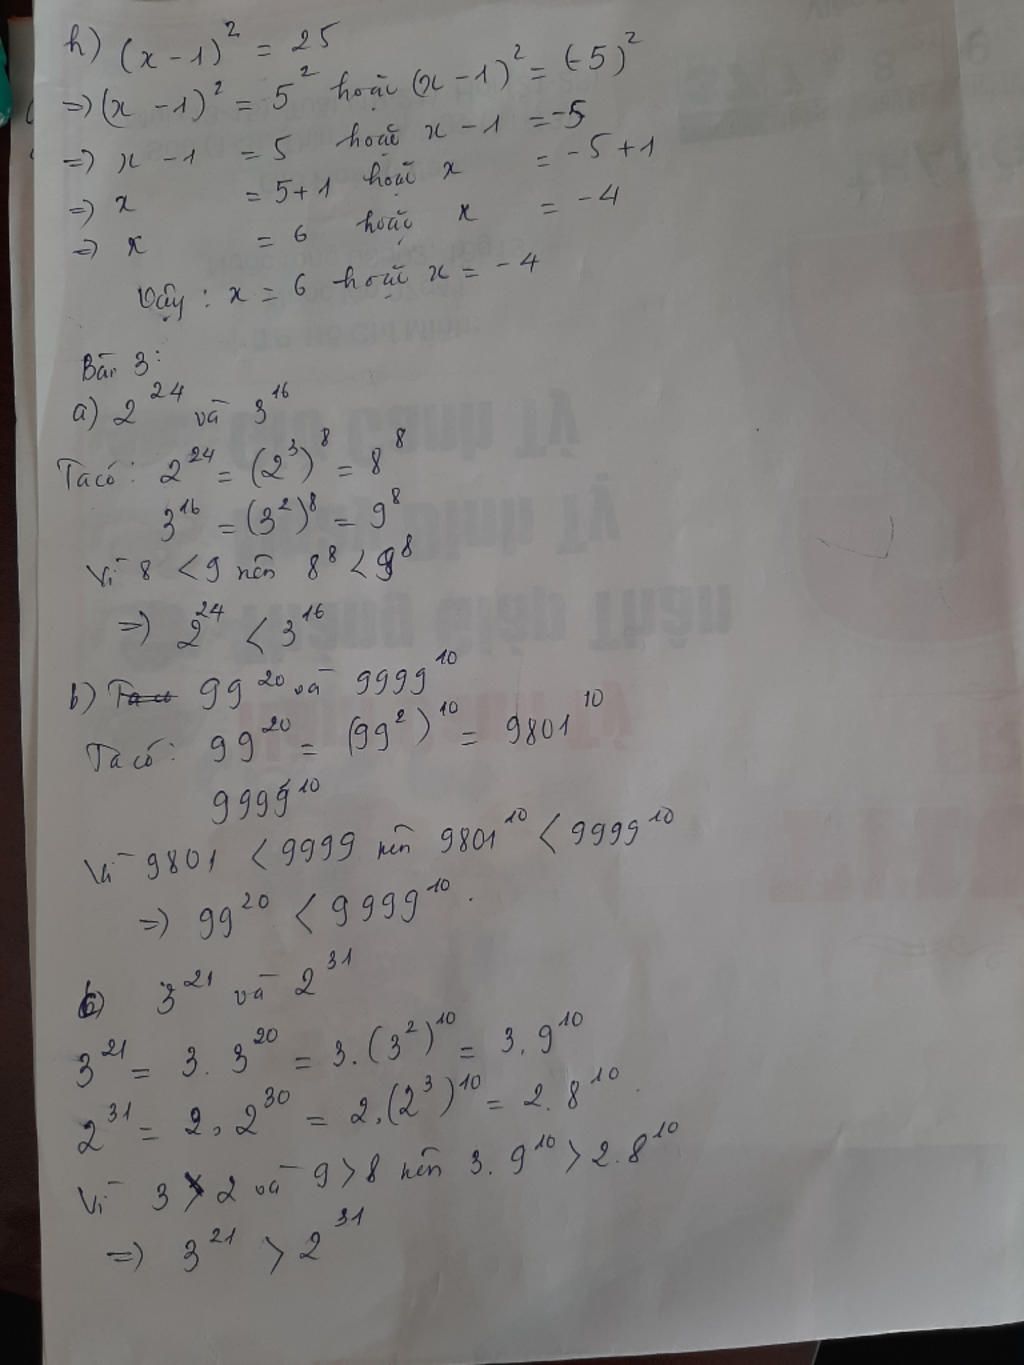 h) (x - 1)² = 25
=> (x - 1)² = 5² hoặc (x - 1)² = (-5)²
=> x - 1 = 5 hoặc x - 1 = -5
=> x = 5+1 hoặc x = -5+1
=> x = 6 hoặc x = -4
Vậy : x = 6 hoặc x = -4
Bài 3:
a) 2²⁴ và 3¹⁶
Ta có: 2²⁴ = (2³)⁸ = 8⁸
3¹⁶ = (3²)⁸ = 9⁸
Vì 8 < 9 nên 8⁸ < 9⁸
=> 2²⁴ < 3¹⁶
b) 99²⁰ và 9999¹⁰
Ta có: 99²⁰ = (99²)¹⁰ = 9801¹⁰
9999¹⁰
Vì 9801 < 9999 nên 9801¹⁰ < 9999¹⁰
=> 99²⁰ < 9999¹⁰.
3²¹ và 2³¹
3²¹ = 3. 3²⁰ = 3.(3²)¹⁰ = 3.9¹⁰
2³¹ = 2. 2³⁰ = 2.(2³)¹⁰ = 2.8¹⁰.
Vì 3 > 2 và 9 > 8 nên 3. 9¹⁰ > 2.8¹⁰
=> 3²¹ > 2³¹